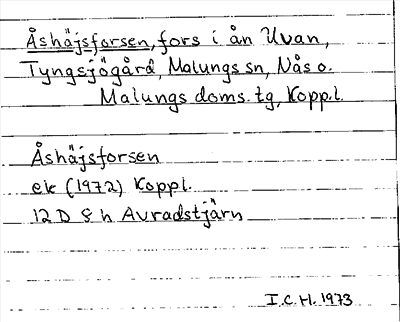 Åshäjsforsen, fors i ån Uvan,
Tyngsjögård, Malungs sn, Nås o.
Malungs doms. tg, Koppl.
Åshäjsforsen
ek (1972) Koppl.
12 D 8 h Avradstjärn
I.C.H. 1973